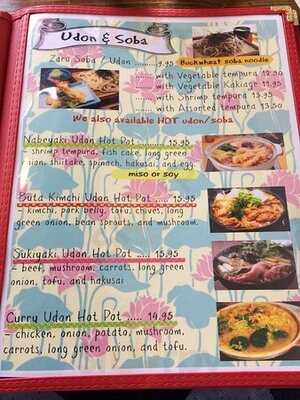 Udon & Soba
Zaru Soba / Udon ..... 9.95
Buckwheat soba noodle
..... with Vegetable tempura 12.50
..... with Vegetable Kakiage 12.95
..... with Shrimp tempura 12.95
..... with Assorted tempura 13.50
We also available HOT udon/soba
Nabeyaki Udon Hot Pot ..... 15.95
- shrimp tempura, fish cake, long green
onion, shiitake, spinach, hakusai, and egg.
miso or soy
Buta Kimchi Udon Hot Pot .... 15.95
- kimchi, pork belly, tofu, chives, long
green onion, bean sprouts, and mushroom.
Sukiyaki Udon Hot Pot .... 15.95
- beef, mushroom, carrots, long green
onion, tofu, and hakusai
Curry Udon Hot Pot ..... 14.95
- chicken, onion, potato, mushroom,
carrots, long green onion, and tofu.